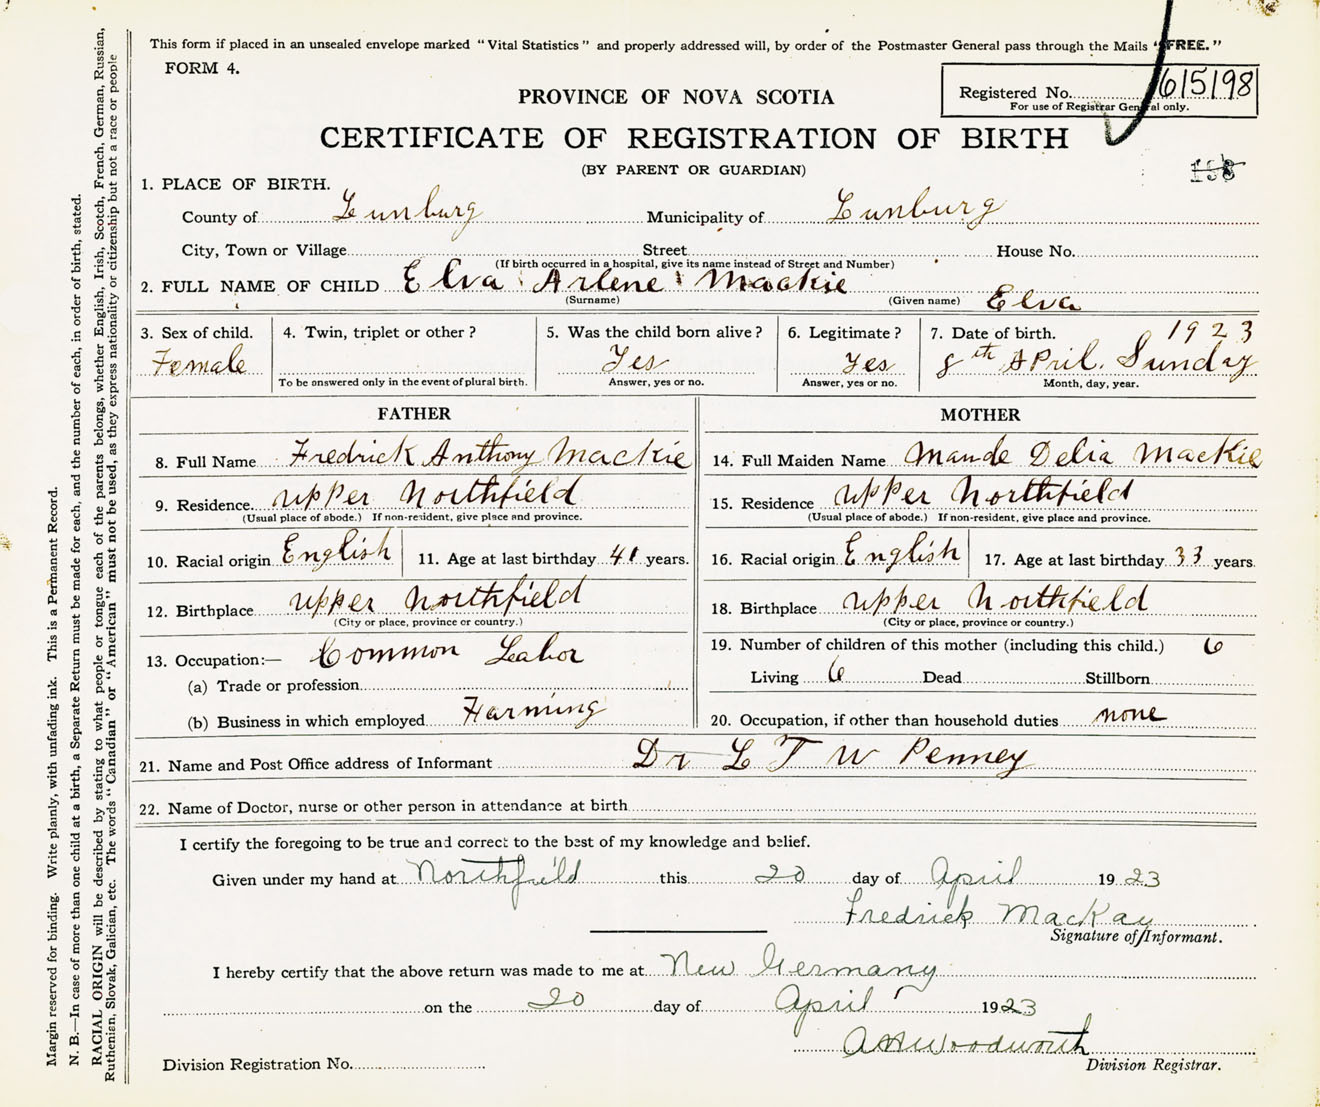 This form if placed in an unsealed envelope marked "Vital Statistics" and properly addressed will, by order of the Postmaster General pass through the Mails "FREE."
FORM 4.
Registered No. 615198
For use of Registrar General only.
PROVINCE OF NOVA SCOTIA
CERTIFICATE OF REGISTRATION OF BIRTH
(BY PARENT OR GUARDIAN)
198
1. PLACE OF BIRTH.
County of Lunburg Municipality of Lunburg
City, Town or Village Street House No.
(If birth occurred in a hospital, give its name instead of Street and Number)
2. FULL NAME OF CHILD Elva Arlene Mackie
(Surname) (Given name) Elva
3. Sex of child. 4. Twin, triplet or other? 5. Was the child born alive? 6. Legitimate? 7. Date of birth. 1923
Female Yes Yes 8th April. Sunday
To be answered only in the event of plural birth. Answer, yes or no. Answer, yes or no. Month, day, year.
FATHER
8. Full Name Fredrick Anthony Mackie
9. Residence. upper Northfield
(Usual place of abode.) If non-resident, give place and province.
10. Racial origin English 11. Age at last birthday 41 years.
12. Birthplace upper Northfield
(City or place, province or country.)
13. Occupation:— Common Leabor
(a) Trade or profession
(b) Business in which employed Farming
MOTHER
14. Full Maiden Name Maude Delia MacKie
15. Residence upper Northfield
(Usual place of abode.) If non-resident, give place and province.
16. Racial origin English 17. Age at last birthday 33 years.
18. Birthplace upper Northfield
(City or place, province or country.)
19. Number of children of this mother (including this child.) 6
Living 6 Dead Stillborn
20. Occupation, if other than household duties none
21. Name and Post Office address of Informant Dr L T W Penney
22. Name of Doctor, nurse or other person in attendance at birth
I certify the foregoing to be true and correct to the best of my knowledge and belief.
Given under my hand at Northfield this 20 day of April 1923
Fredrick MacKay
Signature of Informant.
I hereby certify that the above return was made to me at New Germany
on the 20 day of April 1923
AHWoodworth
Division Registration No. Division Registrar.
Margin reserved for binding. Write plainly, with unfading ink. This is a Permanent Record.
N. B.—In case of more than one child at a birth, a Separate Return must be made for each, and the number of each, in order of birth, stated.
RACIAL ORIGIN will be described by stating to what people or tongue each of the parents belongs, whether English, Irish, Scotch, French, German, Russian,
Ruthenian, Slovak, Galician, etc. The words "Canadian" or "American" must not be used, as they express nationality or citizenship but not a race or people